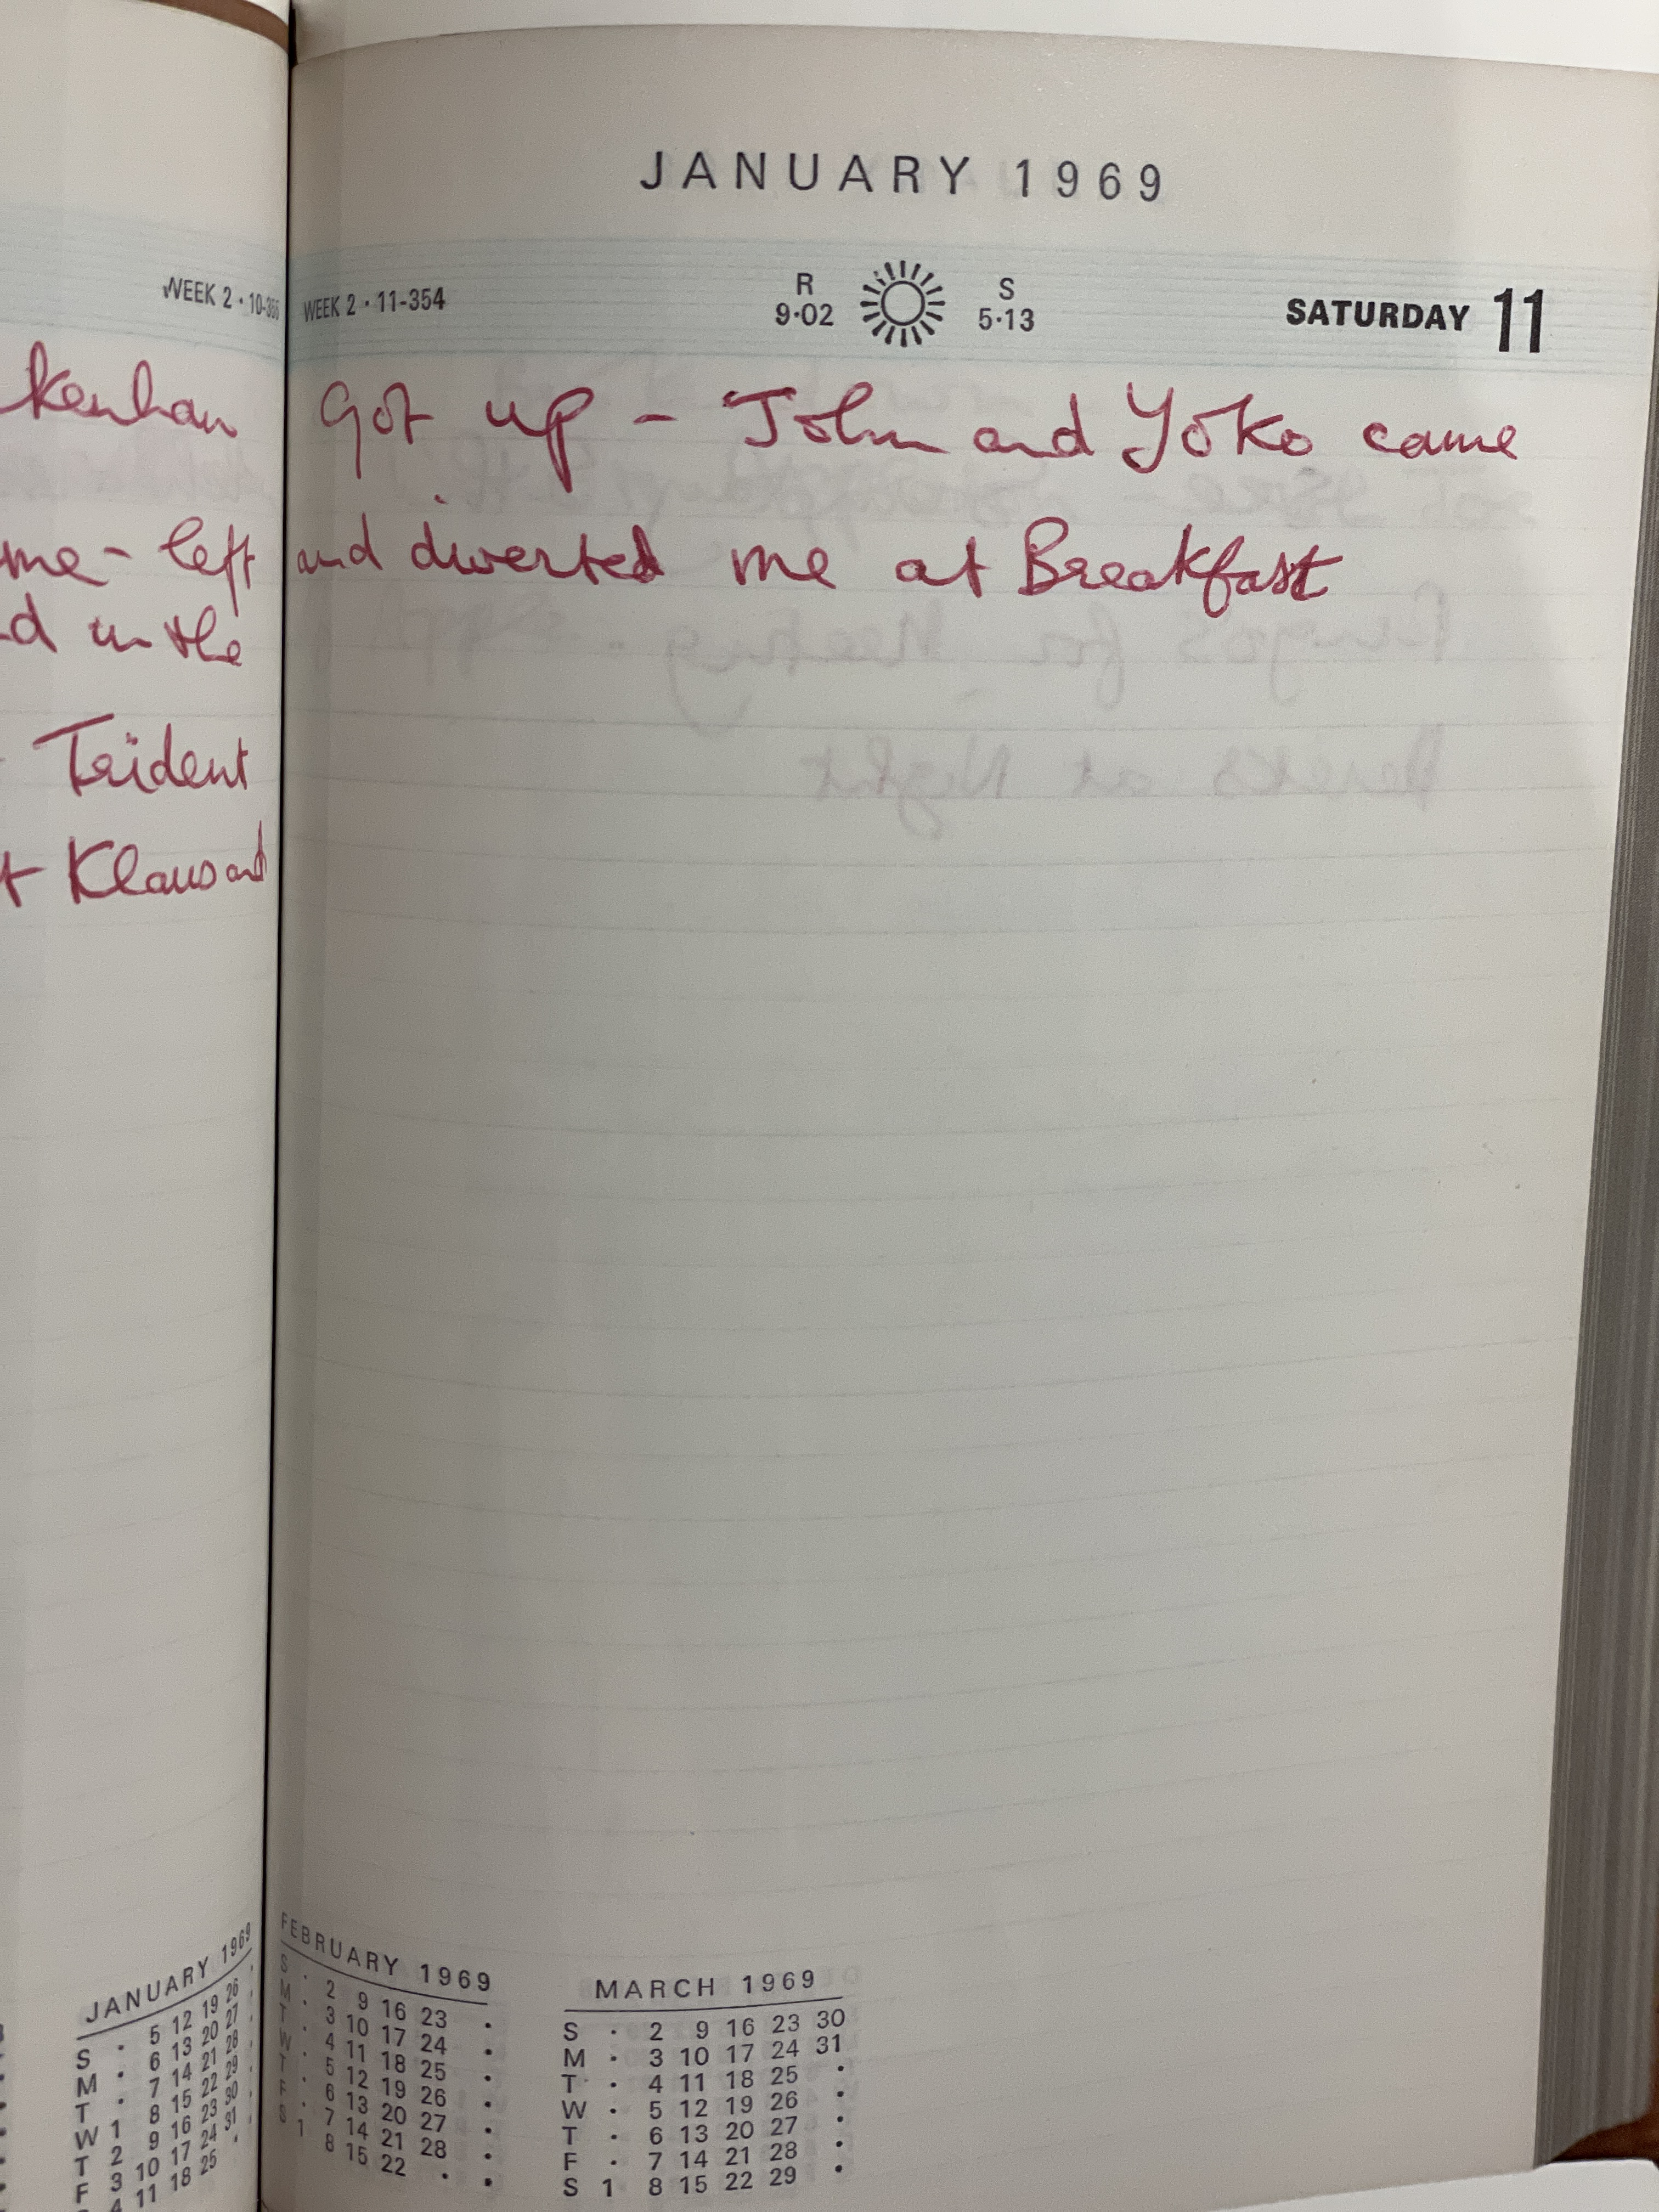 WEEK 2 · 10-355
kenham
me - left
d in the
Trident
t Klaus and
JANUARY 1969
S · 5 12 19 26
M · 6 13 20 27
T · 7 14 21 28
W 1 8 15 22 29
T 2 9 16 23 30
F 3 10 17 24 31
4 11 18 25 ·
JANUARY 1969
WEEK 2 · 11-354
R
9·02
S
5·13
SATURDAY 11
Got up - John and Yoko came
and diverted me at Breakfast
FEBRUARY 1969
S · 2 9 16 23 ·
M · 3 10 17 24 ·
T · 4 11 18 25 ·
W · 5 12 19 26 ·
T · 6 13 20 27 ·
F · 7 14 21 28 ·
S 1 8 15 22 · ·
MARCH 1969
S · 2 9 16 23 30
M · 3 10 17 24 31
T · 4 11 18 25 ·
W · 5 12 19 26 ·
T · 6 13 20 27 ·
F · 7 14 21 28 ·
S 1 8 15 22 29 ·